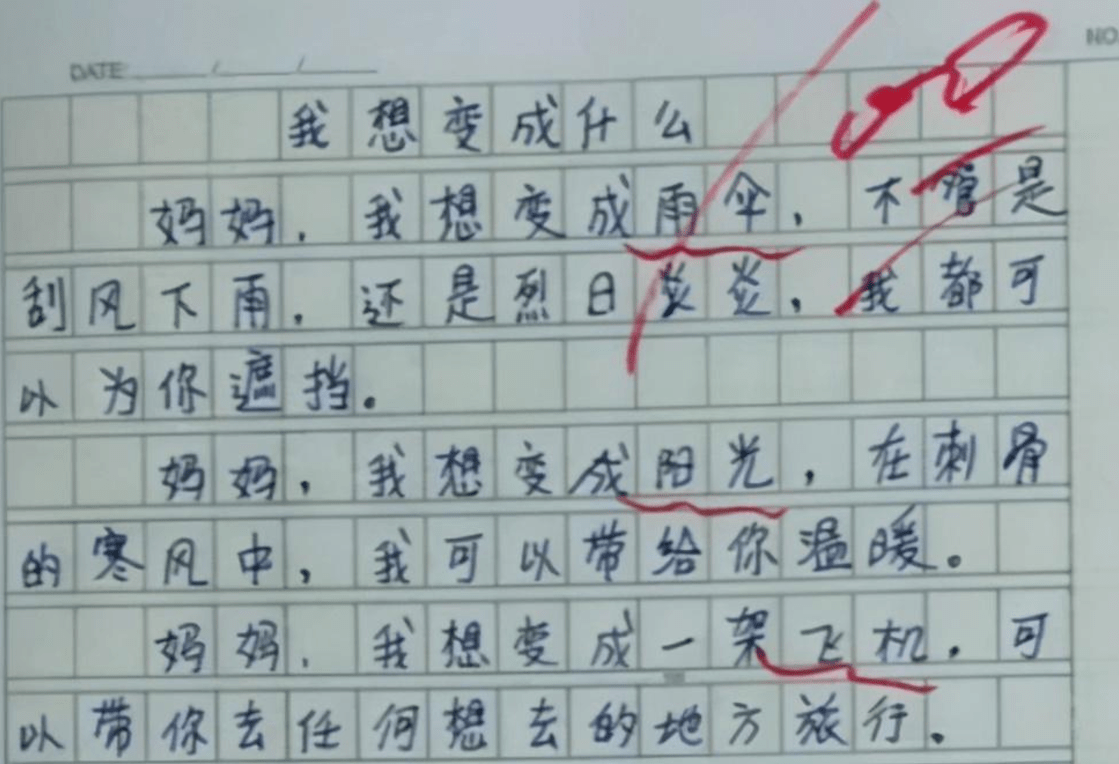 DATE / /
NO
我想变成什么
妈妈，我想变成雨伞，不管是
刮风下雨，还是烈日炎炎，我都可
以为你遮挡。
妈妈，我想变成阳光，在刺骨
的寒风中，我可以带给你温暖。
妈妈，我想变成一架飞机，可
以带你去任何想去的地方旅行。